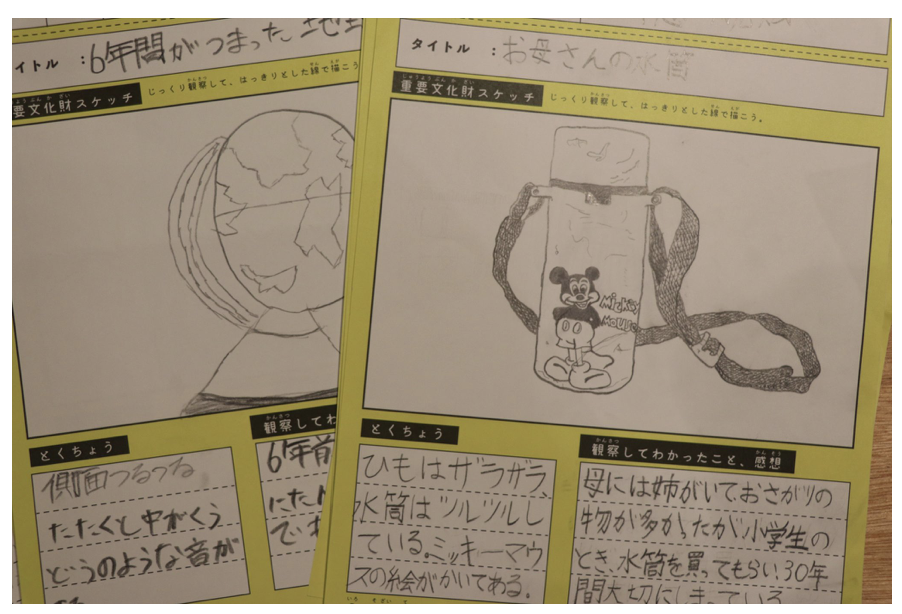 イトル :6年間がつまった地
要文化財スケッチ じっくり観察して、はっきりとした線で描こう
とくちょう
観察してわ
側面つるつる
たたくと中がくう
どうのような音が
6年前
にた
でわ
タイトル :お母さんの水筒
重要文化財スケッチ じっくり観察して、はっきりとした線で描こう。
Mickey
Mouse
とくちょう
ひもはザラザラ、
水筒はツルツルし
ている。ミッキーマウ
スの絵がかいてある。
観察してわかったこと、感想
母には姉がいておさがりの
物が多かったが小学生の
とき、水筒を買ってもらい30年
間大切にしまっている